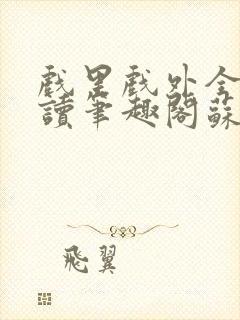 戲里戲外全
讀筆趣閣蘇
飛翼